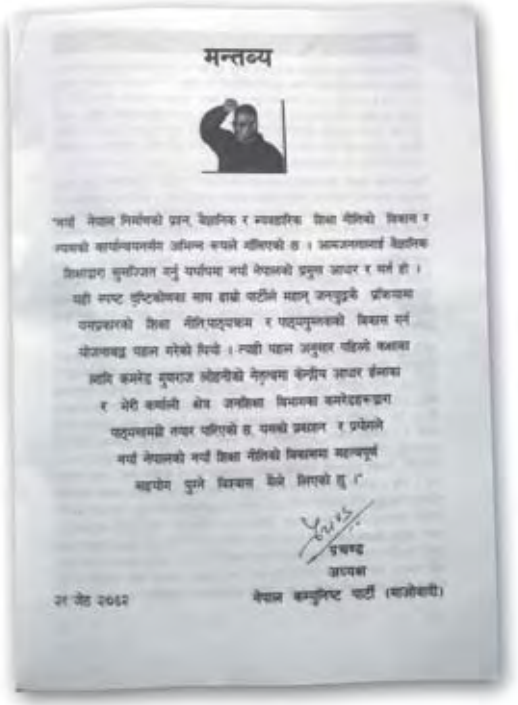 मन्तव्य
"नयाँ नेपाल निर्माणको प्रश्न, वैज्ञानिक र व्यवहारिक शिक्षा नीतिको विकास र
त्यसको कार्यान्वयनसँग अभिन्न रूपले गाँसिएको छ । आमजनतालाई वैज्ञानिक
शिक्षाद्वारा सुसज्जित गर्नु यर्थाथमा नयाँ नेपालको प्रमुख आधार र सर्त हो ।
यही स्पष्ट दृष्टिकोणका साथ हाम्रो पार्टीले महान् जनयुद्धकै प्रक्रियामा
यसप्रकारको शिक्षा नीति,पाठ्यक्रम र पाठ्यपुस्तकको विकास गर्न
योजनाबद्ध पहल गरेको थियो । त्यही पहल अनुसार पहिलो कक्षाका
लागि कमरेड लोहनीको नेतृत्वमा केन्द्रीय आधार इलाका
र भेरी कर्णाली क्षेत्र जनशिक्षा विभागका कमरेडहरूद्वारा
पाठ्यसामग्री तयार पारिएको छ, यसको प्रकाशन र प्रयोगले
नयाँ नेपालको नयाँ शिक्षा नीतिको विकासमा महत्वपूर्ण
सहयोग पुग्ने विश्वास मैले लिएको छु ।"
प्रचण्ड
प्रचण्ड
अध्यक्ष
जेठ २०६२ नेपाल कम्युनिष्ट पार्टी (माओवादी)